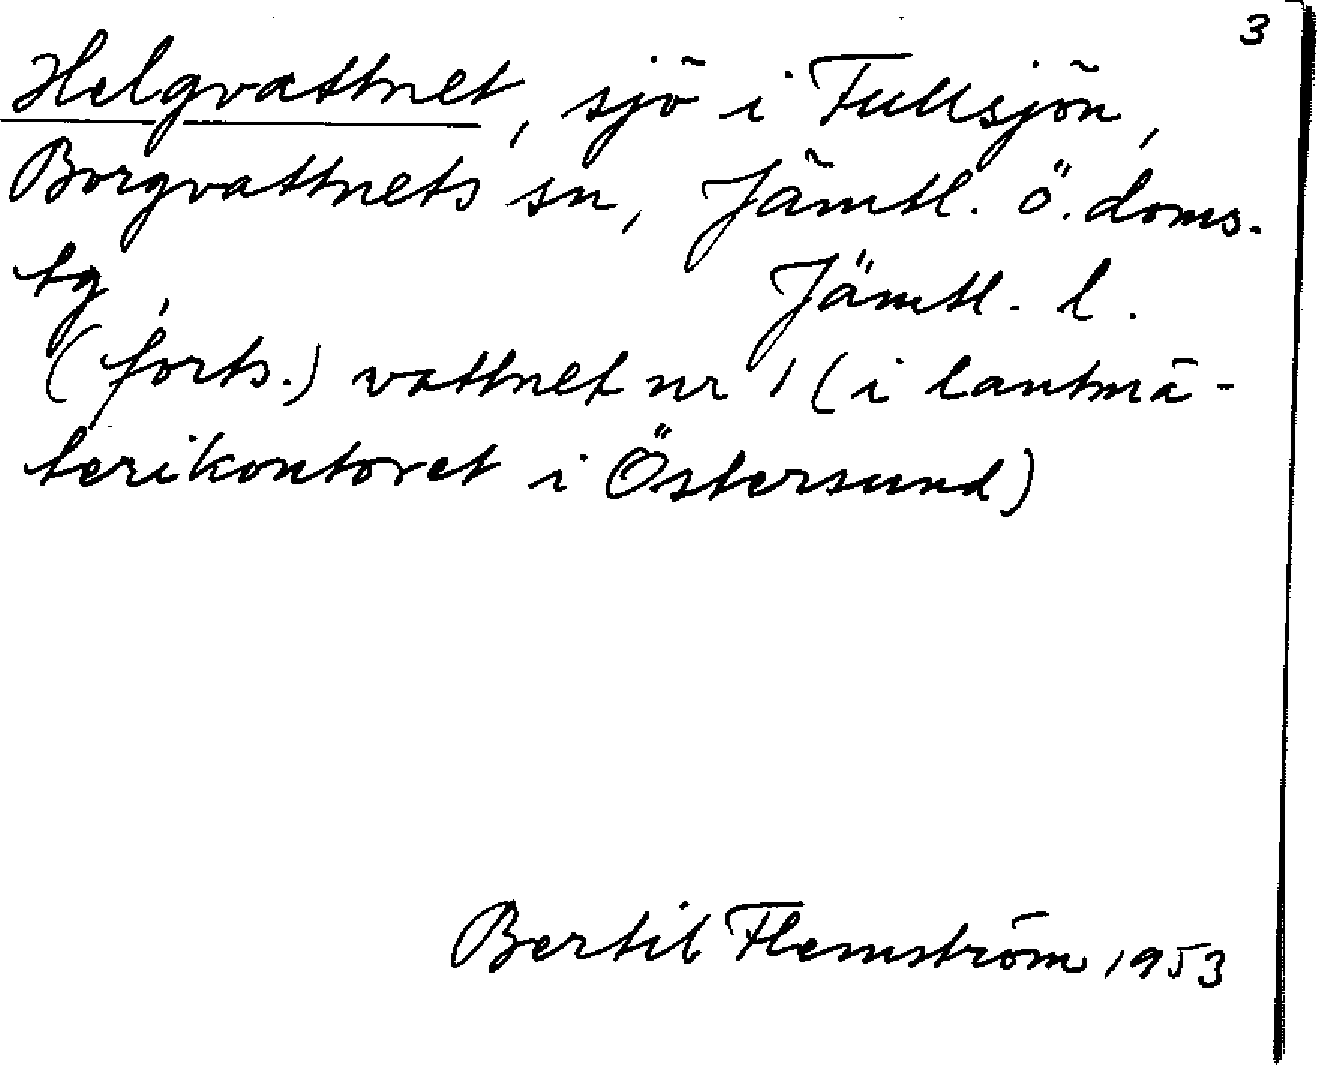 3
Helgvattnet, sjö i Fullsjön,
Borgvattnets sn, Jämtl. ö. doms.
tg, Jämtl. l.
(forts.) vattnet nr 1 (i lantmä-
terikontoret i Östersund)
Bertil Flemström 1953